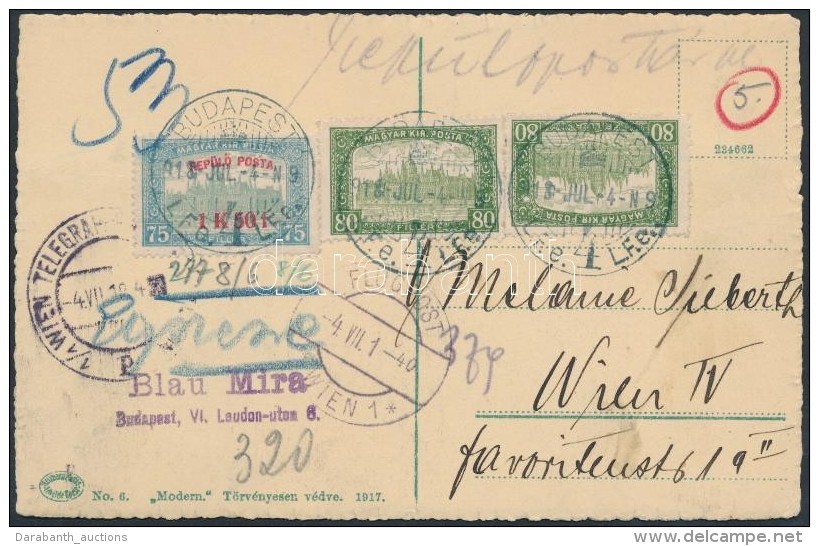 53
Repülőposta
5.
234662
BUDAPEST
918 JUL.-4-N 9
L.F.e.
MAGYAR KIR. POSTA
REPÜLŐ POSTA
1 K 50 f
75 75
BUDAPEST
918-JUL.-4-N
L.F.e.
MAGYAR KIR. POSTA
80 FILLÉR 80
BUDAPEST
918-JUL-4-N9
L.F.e.
MAGYAR KIR. POSTA
80 80
1/1 WIEN TELEGRAPHEN
-4.VII.18.4
FLUGPOST
-4.VII.1-40
WIEN 1*
darabanth
Melanie Sieberth
Wien IV
374
Blau Mira
Budapest, VI. Laudon-utca 6.
320
Favoritenstr 19
No. 6. „Modern." Törvényesen védve. 1917.
Darabanth_auctions
delcampe.net